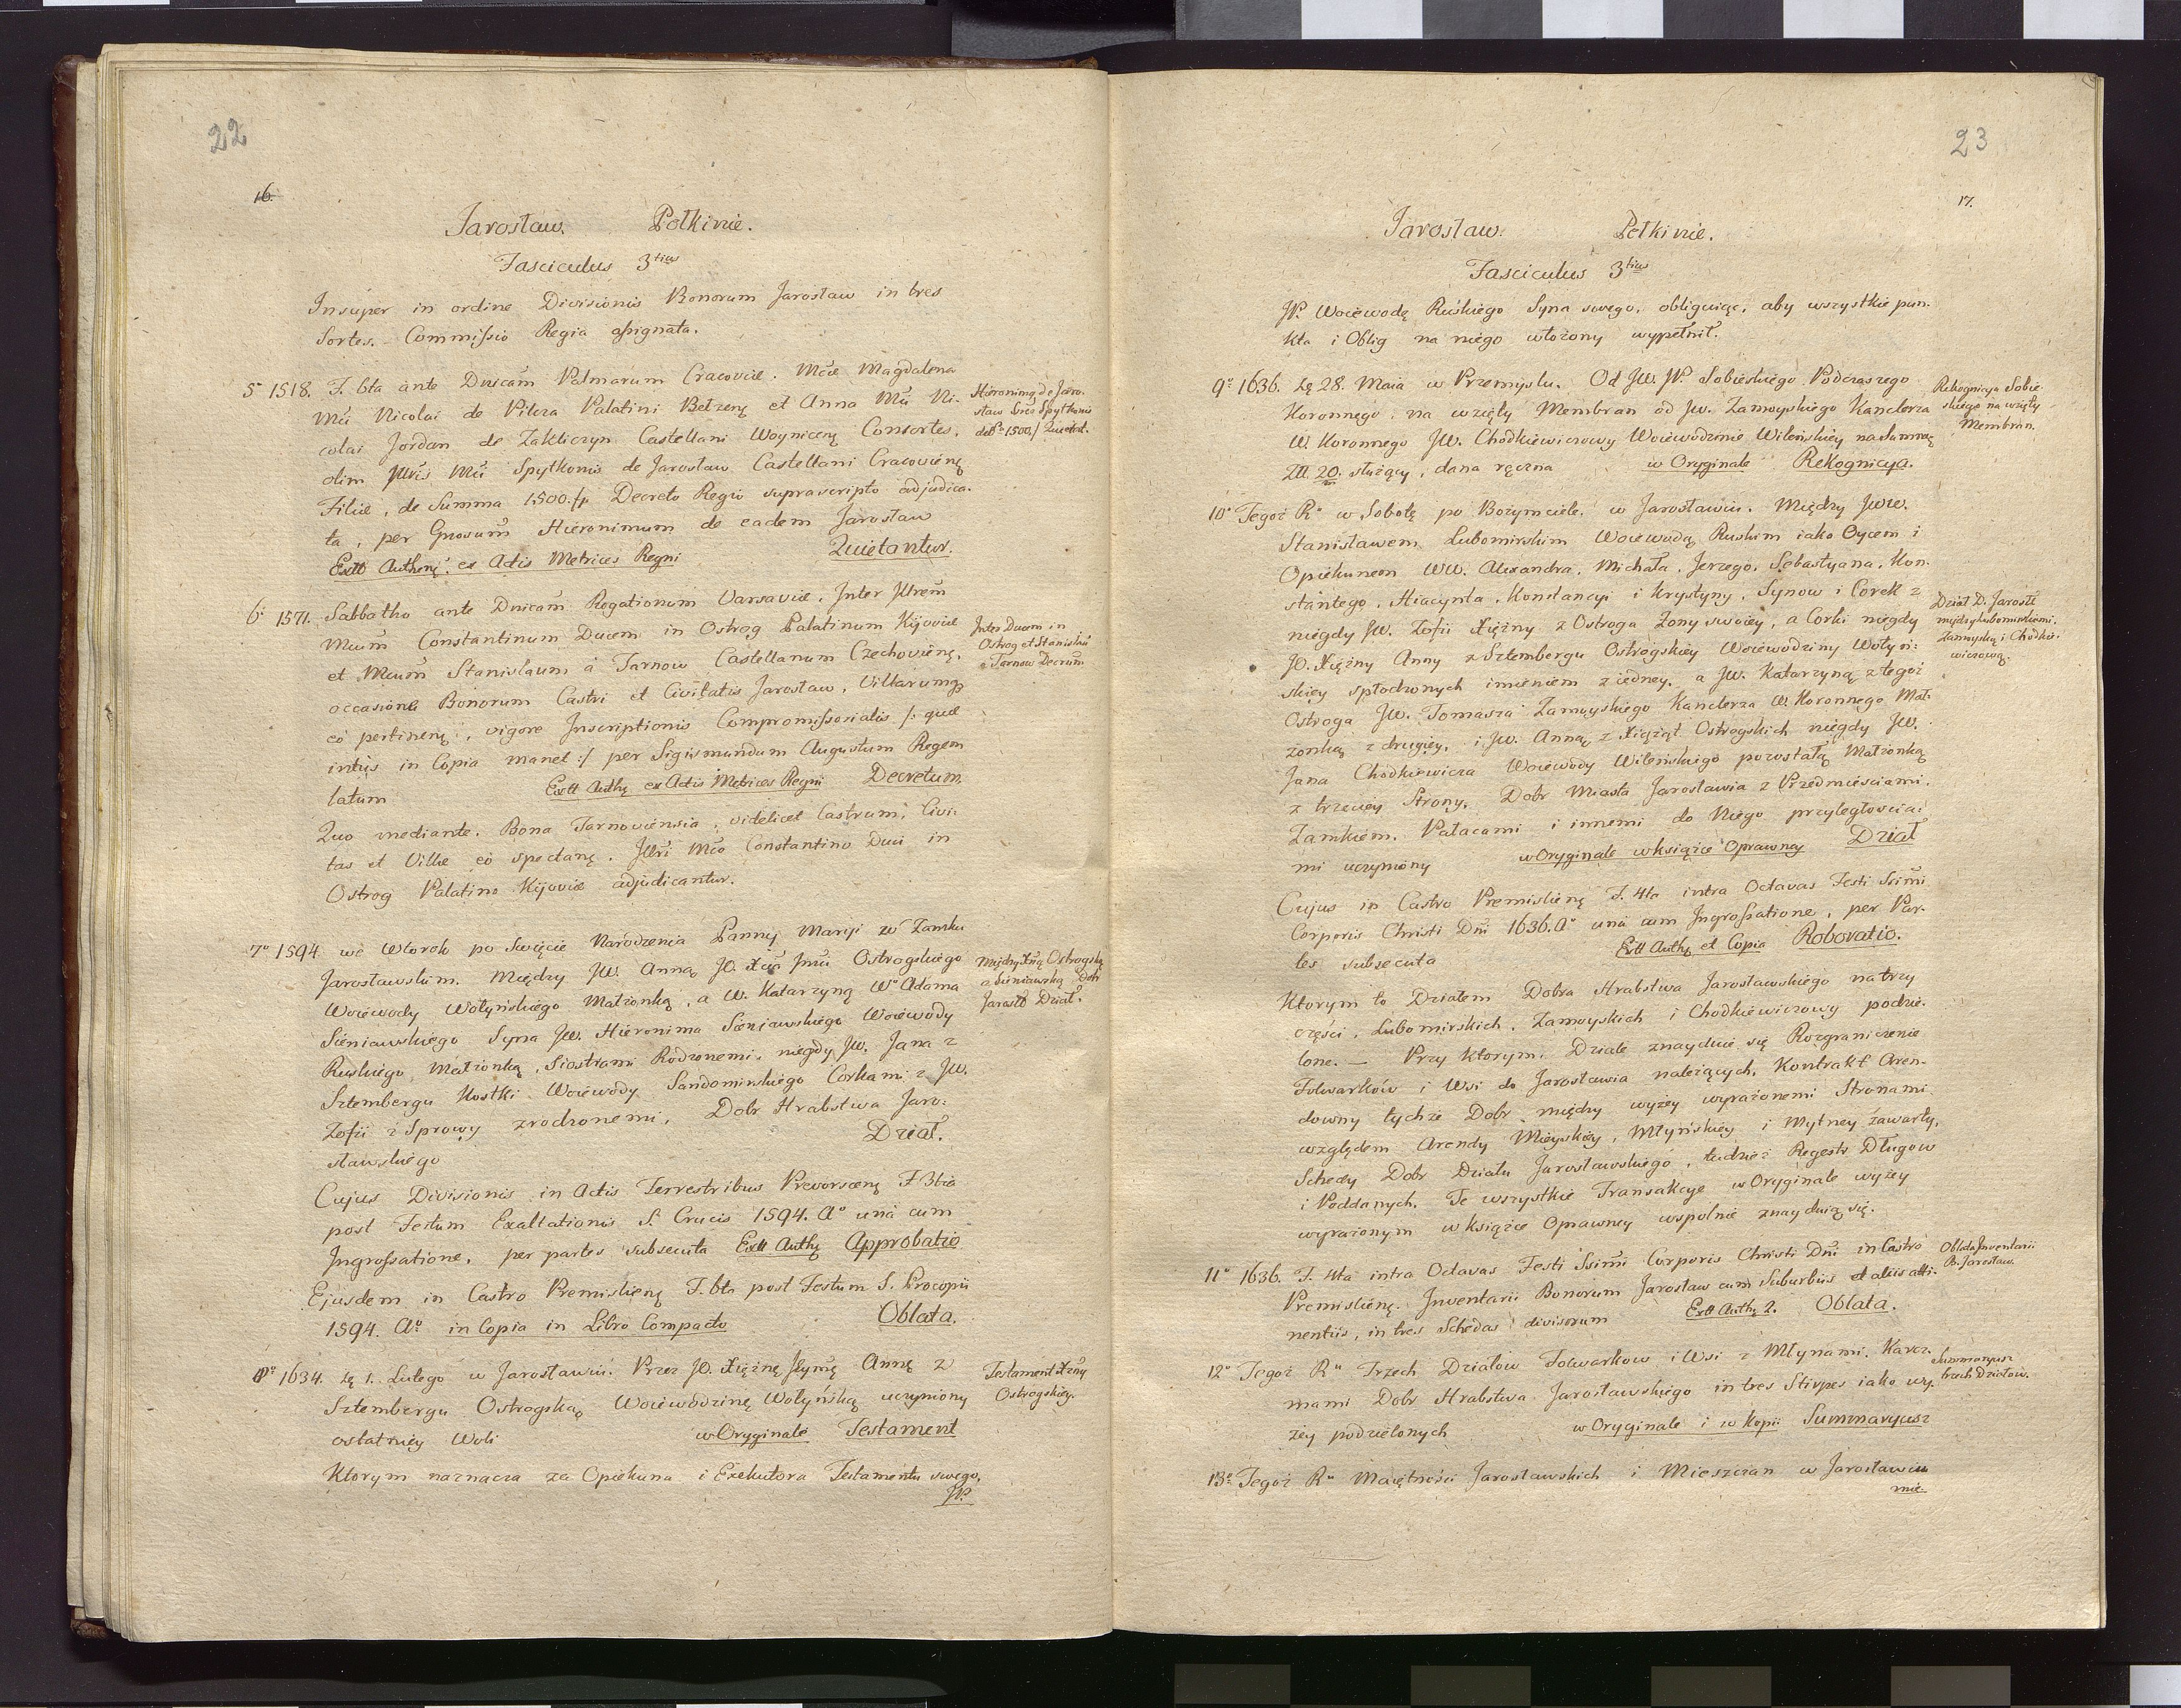 22
16.
Jarosław. Pełkinie.
Fasciculus 3tius
Insuper in ordine Divisionis Bonorum Jarosław in tres
Sortes. Commissio Regia assignata.
5 1518. F. 6ta ante Dnicam Palmarum Cracoviæ. Mcæ Magdalena
Mci Nicolai de Pilcza Palatini Belzenę et Anna Mci Ni-
colai Jordan de Zakliczyn Castellani Woynicenę Consortes,
olim Mci Spytkonis de Jarosław Castellani Cracovienę
Filiæ, de Summa 1500. f/ Decreto Regio suprascripto adjudica-
ta, per Gnosum Hieronimum de eadem Jarosław
Extt Authenę: ex Actis Metrices Regni Quietantur.
Hieronimq de Jaro-
sław
1500. f Quietat.
6: 1571. Sabbatho ante Dnicam Rogationum Varsaviæ. Inter Illrem
Mcum Constantinum Ducem in Ostrog Palatinum Kijoviæ
et Mcum Stanislaum à Tarnow Castellanum Czechovienę,
occasione Bonorum Castri et Civitatis Jarosław, Villarumq
eò pertinenę, vigore Inscriptionis Compromissorialis /: quæ
intùs in Copia manet :/ per Sigismundum Augustum Regem
latum Extt Authę ex Actis Metrices Regni Decretum.
Inter Ducem in
Ostrog et Stanisłau
à Tarnow Decretum
Quo mediante. Bona Tarnoviensia, videlicet Castrum, Civi-
tas et Villæ eò spectanę. Illri Mco Constantino Duci in
Ostrog Palatino Kijoviæ adjudicantur.
7o 1594 we Wtorek po Swięcie Narodzenia Panny Maryi w Zamku
Jarosławskim. Między JW. Anną JO. Xcia Jmci Ostrogskiego
Woiewody Wołyńskiego Małżonką, a W. Katarzyną Wo Adama
Sieniawskiego Syna JW. Hieronima Sieniawskiego Woiewody
Ruskiego Małżonką, Siostrami Rodzonemi. niegdy JW. Jana z
Sztembergu Kostki Woiewody Sandomirskiego Corkami z JW.
Zofii z Sprowy zrodzonemi, Dobr Hrabstwa Jaro-
sławskiego Dział.
Między Xną Ostrogską
a Sieniawską Dobr
Jarosł Dział.
Cujus Divisionis in Actis Terrestribus Prevorscenę F 3tia
post Festum Exaltationis S. Crucis 1594. Ao unà cum
Ingrossatione, per partes subsecuta Extt Authę Approbatio
Ejusdem in Castro Premislienę F. 6ta post Festum S. Procopii
1594. Ao in Copia in Libro Compacto Oblata.
8o 1634. dę 1. Lutego w Jarosławiu. Przez JO. Xiężnę Jeymę Annę z
Sztembergu Ostrogską Woiewodzinę Wołyńską uczyniony
ostatniey Woli w Oryginale Testament
Testament Xżny
Ostrogskiey.
Ktorym naznacza za Opiekuna i Exekutora Testamentu swego,
JP.
23
17.
Jarosław. Pełkinie.
Fasciculus 3tius
JP. Woiewodę Ruskiego Syna swego, obliguiąc, aby wszystkie pun-
kta i Oblig na niego włożony wypełnił.
9o 1636. dę 28. Maia w Przemyslu. Od JW. JP. Sobieskiego Podczaszego
Koronnego, na wzięty Membran od JW. Zamoyskiego Kanclerza
W. Koronnego JW. Chodkiewiczowy Woiewodzinie Wileńskiey na Summę
Złł. 20. m służący, dana ręczna w Oryginale Rekognicya.
Rekognicya Sobie-
skiego na wzięty
Membran.
10o Tegoż Ru w Sobotę po Bożymciele. w Jarosławiu. Między JWW.
Stanisławem Lubomirskim Woiewodą Ruskim iako Oycem i
Opiekunem WW. Alexandra, Michała, Jerzego, Sebastyana, Kon-
stantego, Hiacynta, Konstancyi i Krystyny, Synow i Corek z
niegdy JW. Zofii Xiężny z Ostroga Żony swoiey, a Corki niegdy
JO. Xiężny Anny z Sztembergu Ostrogskiey Woiewodziny Wołyń-
skiey spłodzonych imieniem z iedney, a JW. Katarzyną z tegoż
Ostroga JW. Tomasza Zamoyskiego Kanclerza W. Koronnego Mał-
żonką z drugiey, i JW. Anną z Xiążąt Ostrogskich niegdy JW.
Jana Chodkiewicza Woiewody Wileńskiego pozostałą Małżonką
z trzeciey Strony. Dobr Miasta Jarosławia z Przedmieściami,
Zamkiem, Pałacami i innemi do Niego przyległościa-
mi uczyniony w Oryginale w książce Oprawney Dział
Dział D. Jarosł
między Lubomirskiemi,
Zamoyską i Chodkie-
wiczową.
Cujus in Castro Premislienę F. 4ta intra Octavas Festi Ssimi
Corporis Christi Dni 1636. Ao unà cum Ingrossatione, per Par-
tes subsecuta Extt Authę et Copia Roboratio.
Ktorym to Działem Dobra Hrabstwa Jarosławskiego na trzy
części, Lubomirskich, Zamoyskich i Chodkiewiczowy podzie-
lone. — Przy ktorym. Dziale znayduie się Rozgraniczenie
Folwarków i Wsi do Jarosławia należących, Kontrakt Aren-
downy tychże Dobr między wyżey wyrażonemi Stronami
względem Arendy Mieyskiey, Młyńskiey i Mytney zawarty,
Schedy Dobr Działu Jarosławskiego, tudzież Regestr Długow
i Poddanych. Te wszystkie Transakcye w Oryginale wyżey
wyrażonym w książce Oprawney wspolnie znayduią się.
11o 1636. F. 4ta intra Octavas Festi Ssimi Corporis Christi Dni in Castro
Premislienę. Inventarii Bonorum Jarosław cum Suburbiis et aliis atti-
nentiis, in tres Schedas divisorum Extt Authę 2. Oblata.
Oblata Inventarii
B. Jarosław.
12o Tegoż Ru Trzech Działow Folwarkow i Wsi z Młynami, Karcz-
mami Dobr Hrabstwa Jarosławskiego in tres Stirpes iako wy-
żey podzielonych w Oryginale i w kopii Summaryusz
Summaryusz
trzech Działow.
13o Tegoż Ru Maiętności Jarosławskich i Mieszczan w Jarosławiu
mie-